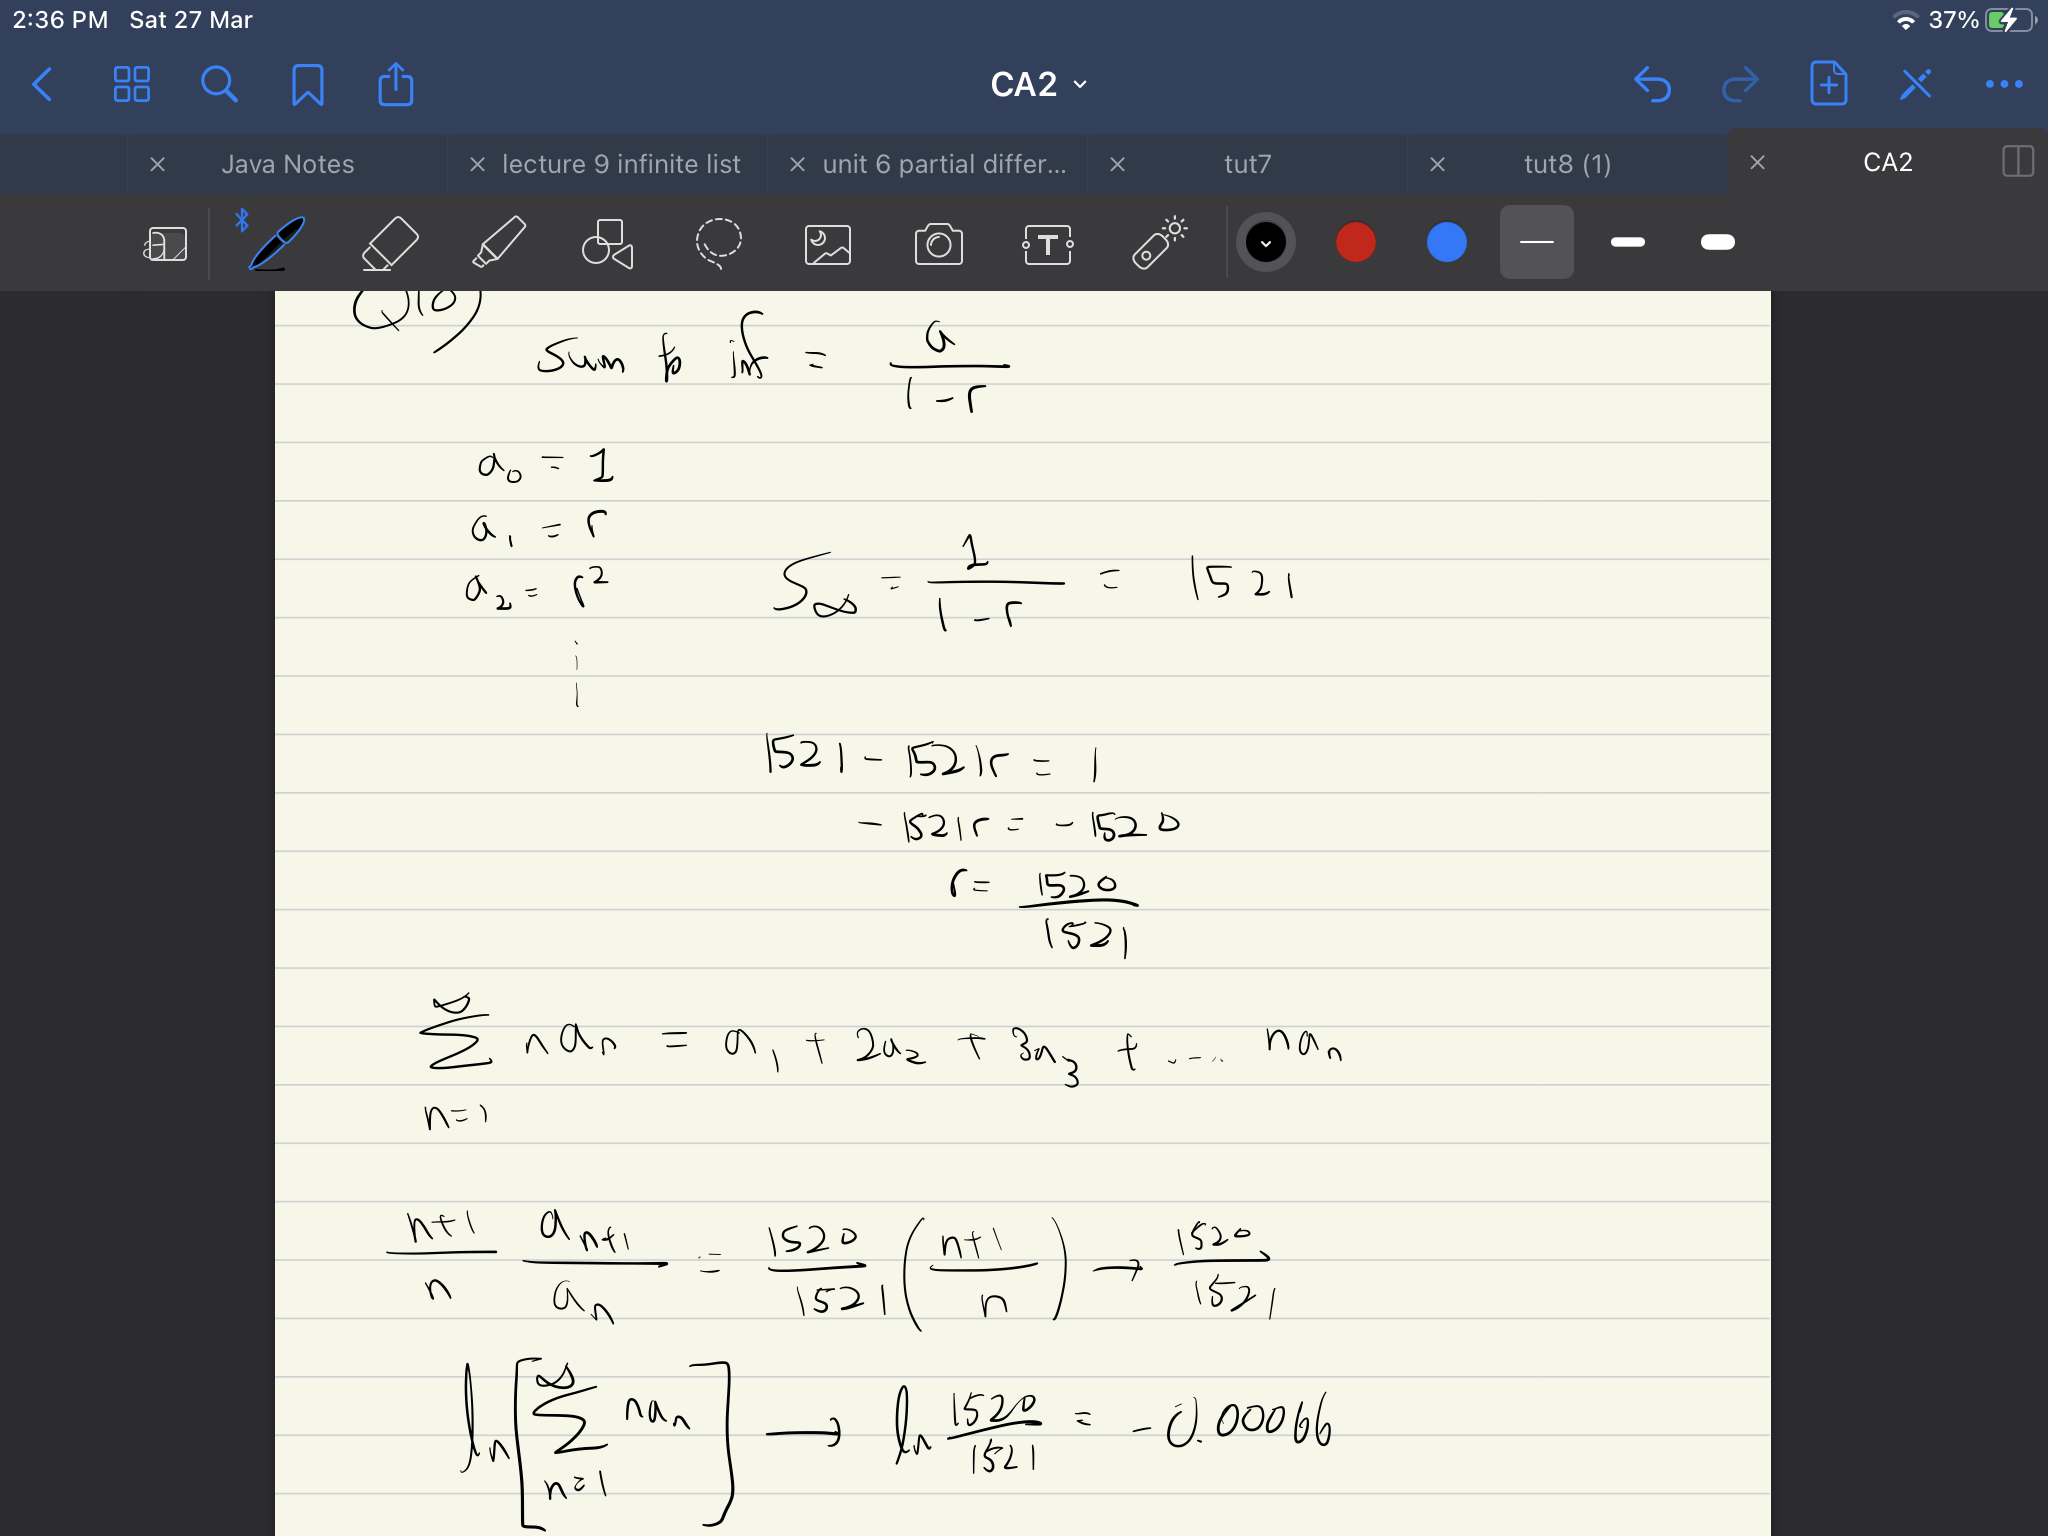 2:36 PM Sat 27 Mar 37%
CA2
Java Notes lecture 9 infinite list unit 6 partial differ... tut7 tut8 (1) CA2
Q10)
sum to inf = a / (1 - r)
a₀ = 1
a₁ = r
a₂ = r²
S∞ = 1 / (1 - r) = 1521
1521 - 1521r = 1
- 1521r = - 1520
r = 1520 / 1521
∑_{n=1}^{∞} naₙ = a₁ + 2a₂ + 3a₃ + .... naₙ
(n+1)/n aₙ₊₁/aₙ = 1520/1521 ((n+1)/n) → 1520/1521
ln [∑_{n=1}^{∞} naₙ] → ln 1520/1521 = -0.00066